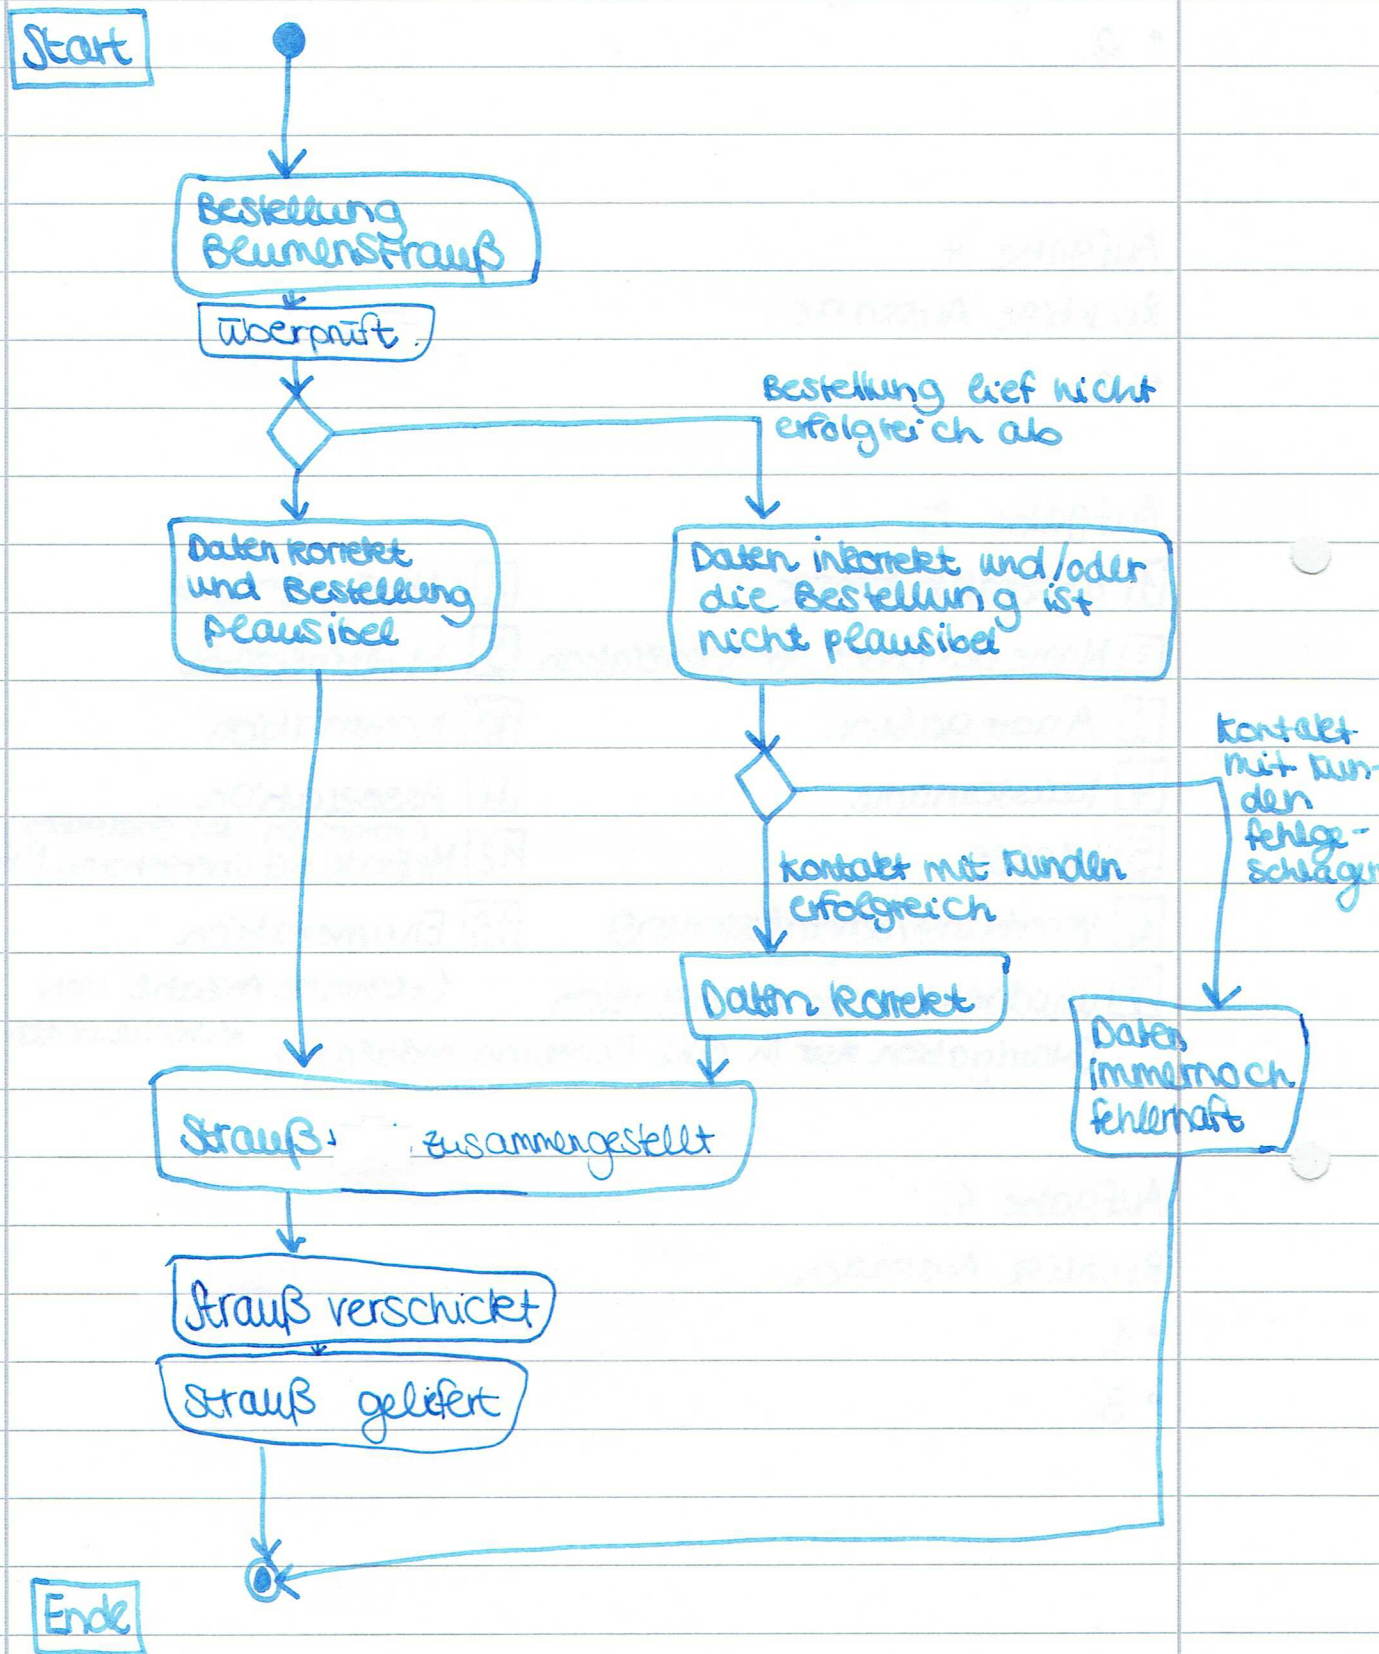 Start
Bestellung
Blumenstrauß
überprüft
Bestellung lief nicht
erfolgreich ab
Daten korrekt
und Bestellung
plausibel
Daten inkorrekt und/oder
die Bestellung ist
nicht plausibel
Kontakt
mit Kun-
den
fehlge-
schlagen
Kontakt mit Kunden
erfolgreich
Daten korrekt
Daten
immernoch
fehlerhaft
Strauß zusammengestellt
Strauß verschickt
Strauß gelifert
Ende